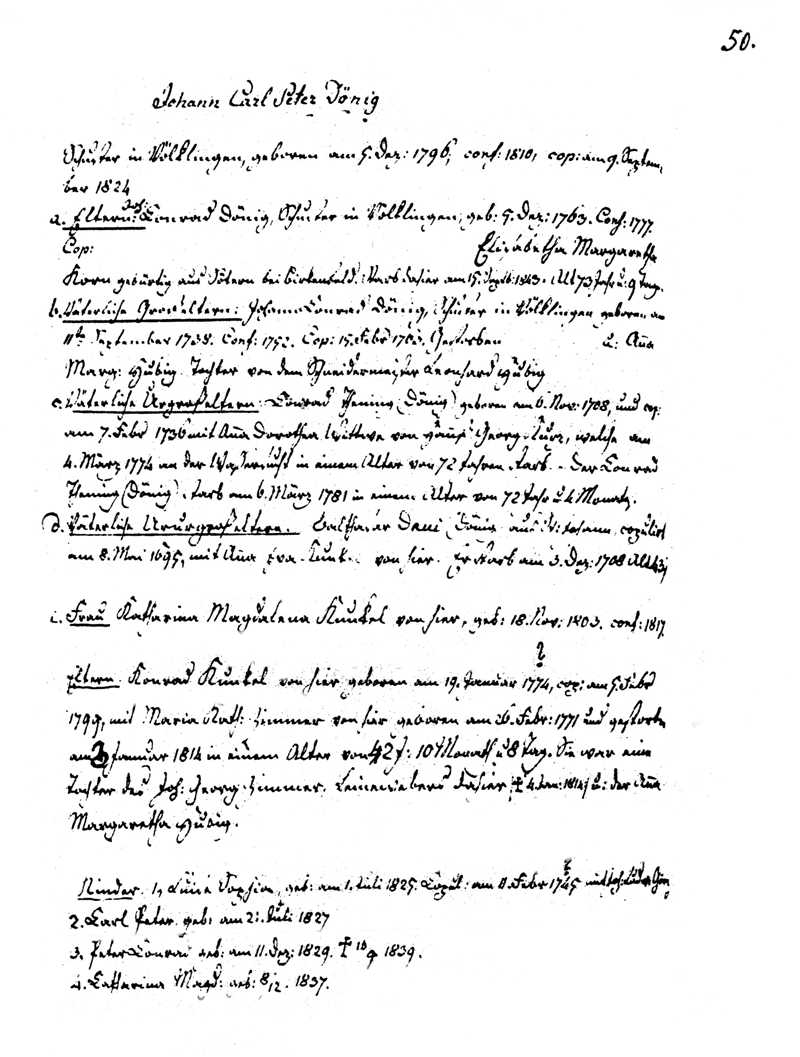 50.
Johann Carl Peter Dönig
Schuster in Völklingen, geboren am 5. Dez: 1796, conf: 1810, cop: am 9. Septem-
ber 1824
a. Eltern: Joh: Conrad Dönig, Schuster in Völklingen, geb: 5. Dez: 1763. Conf: 1777.
Cop: Elisabetha Margaretha
Korn gebürtig aus Sötern bei Birkenfeld. Starb dahier am 15. 1843. Alt 73 Jahr u. 9 Tag.
b. Väterliche Großeltern: Johann Conrad Dönig, Schuster in Völklingen geboren am
11ten September 1738. Conf: 1752. Cop: 15. Febr 1763. Gestorben u: Anna
Marg: Hubig. Tochter von dem Schneidermeister Leonhard Hubig
c. Väterliche Urgroßeltern: Conrad Thening (Dönig) geboren am 6. Nov: 1708, und cop:
am 7. Febr 1736 mit Anna Dorothea Wittwe von Georg Kurz, welche am
4. März 1774 an der Wassersucht in einem Alter von 72 Jahren starb. - Der Conrad
Thening (Dönig) starb am 6. März 1781 in einem Alter von 72 Jahr u. 4 Monate.
d. Väterliche Ururgroßeltern. Balthasar Deni, Dönig aus St: Johann, copulirt
am 8. Mai 1695, mit Anna Eva Kunk. von hier. Er starb am 3. Dez: 1708 Alt 43j
i. Frau Katharina Magdalena Kunkel von hier, geb: 18. Nov: 1803. conf: 1817
?
Eltern. Konrad Kunkel von hier geboren am 19. Januar 1774, cop: am 5. Febr
1799, mit Maria Kath: Zimmer von hier geboren am 26. Febr: 1771 und gestorben
am 3 Januar 1814 in einem Alter von 42 J: 10 Monath u 8 Tag. Sie war eine
Tochter des Joh: Georg Zimmer. Leinewebers dahier, † 4 Jan: 1814 u: der Anna
Margaretha Hubig.
?
Kinder. 1, Luise Sophia, geb: am 1. Juli 1825. Copul: am 8. Febr 1745 mit Joh:
2. Carl Peter geb: am 21. Juli 1827
3. Peter Conrad geb: am 11. Dez: 1829. † 10/9 1839.
4. Catharina Magd: geb: 8/12. 1837.